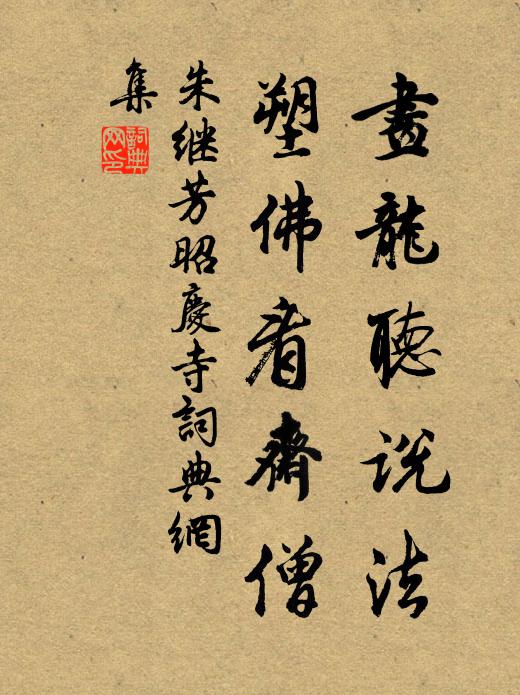 畫龍聽説法
塑佛看齋僧
朱继芳昭慶寺詞典網
集
詞典网印